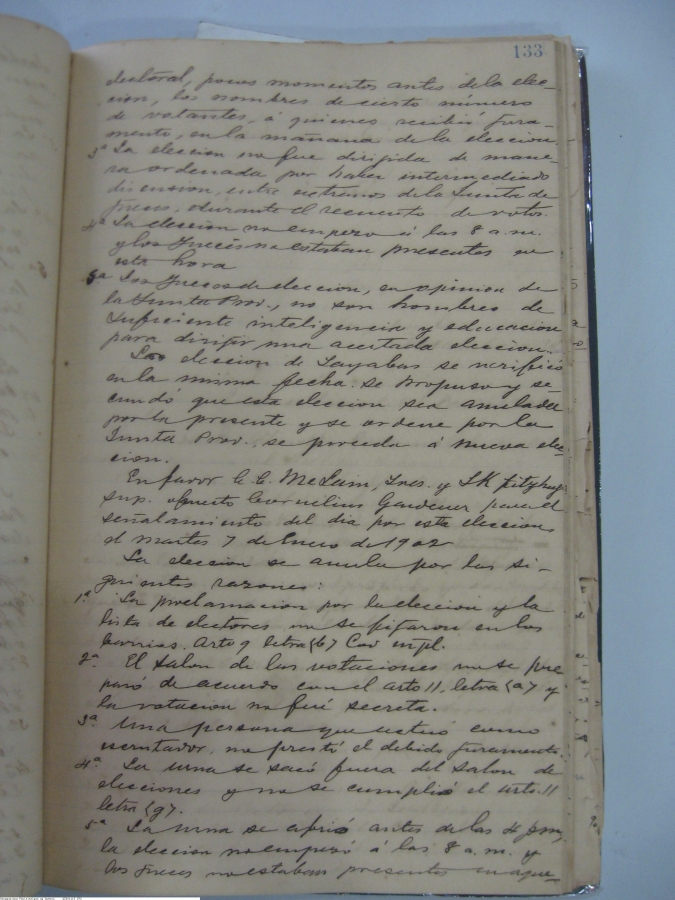 133
electoral, pocos momentos antes de la elec-
cion, los nombres de cierto número
de votantes, á quienes recibió jura-
mento, en la mañana de la eleccion.
3ª La eleccion no fue dirigida de mane-
ra ordenada por haber intermediado
discusion, entre estraños de la Junta de
Jueces, durante el recuento de votos.
4ª La eleccion no empezo á las 8 a.m.
y los Jueces no estaban presentes en
esta hora
5ª Los Jueces de eleccion, en opinion de
la Junta Prov., no son hombres de
suficiente inteligencia y educacion
para dirijir una acertada eleccion.
La eleccion de Tayabas se verificó
en la misma fecha. Se propuso y se-
cundó que esta eleccion sea anulada
por la presente y se ordene por la
Junta Prov., se proceda á nueva elec-
cion.
En favor C. C. McLain, Tres. y J K Fitzhugh
sup. opuesto Cornelius Gardener para el
señalamiento del dia por esta eleccion
el martes 7 de Enero de 1902
La eleccion se anula por las si-
guientes razones:
1ª La proclamacion por la eleccion y la
lista de electores no se fijaron en los
barrios. Arto 9 letra (b) Cod mpl.
2ª El salon de las votaciones no se pre
paró de acuerdo con el arto 11, letra (a) y
la votacion no fué secreta.
3ª Una persona que actuó como
escrutador, no prestó el debido juramento.
4ª La urna se sacó fuera del salon de
elecciones y no se cumplió el arto. 11
letra (g).
5ª La urna se abrió antes de las 4 p.m,
la eleccion no empezó á las 8 a.m. y
los jueces no estaban presentes en aque-